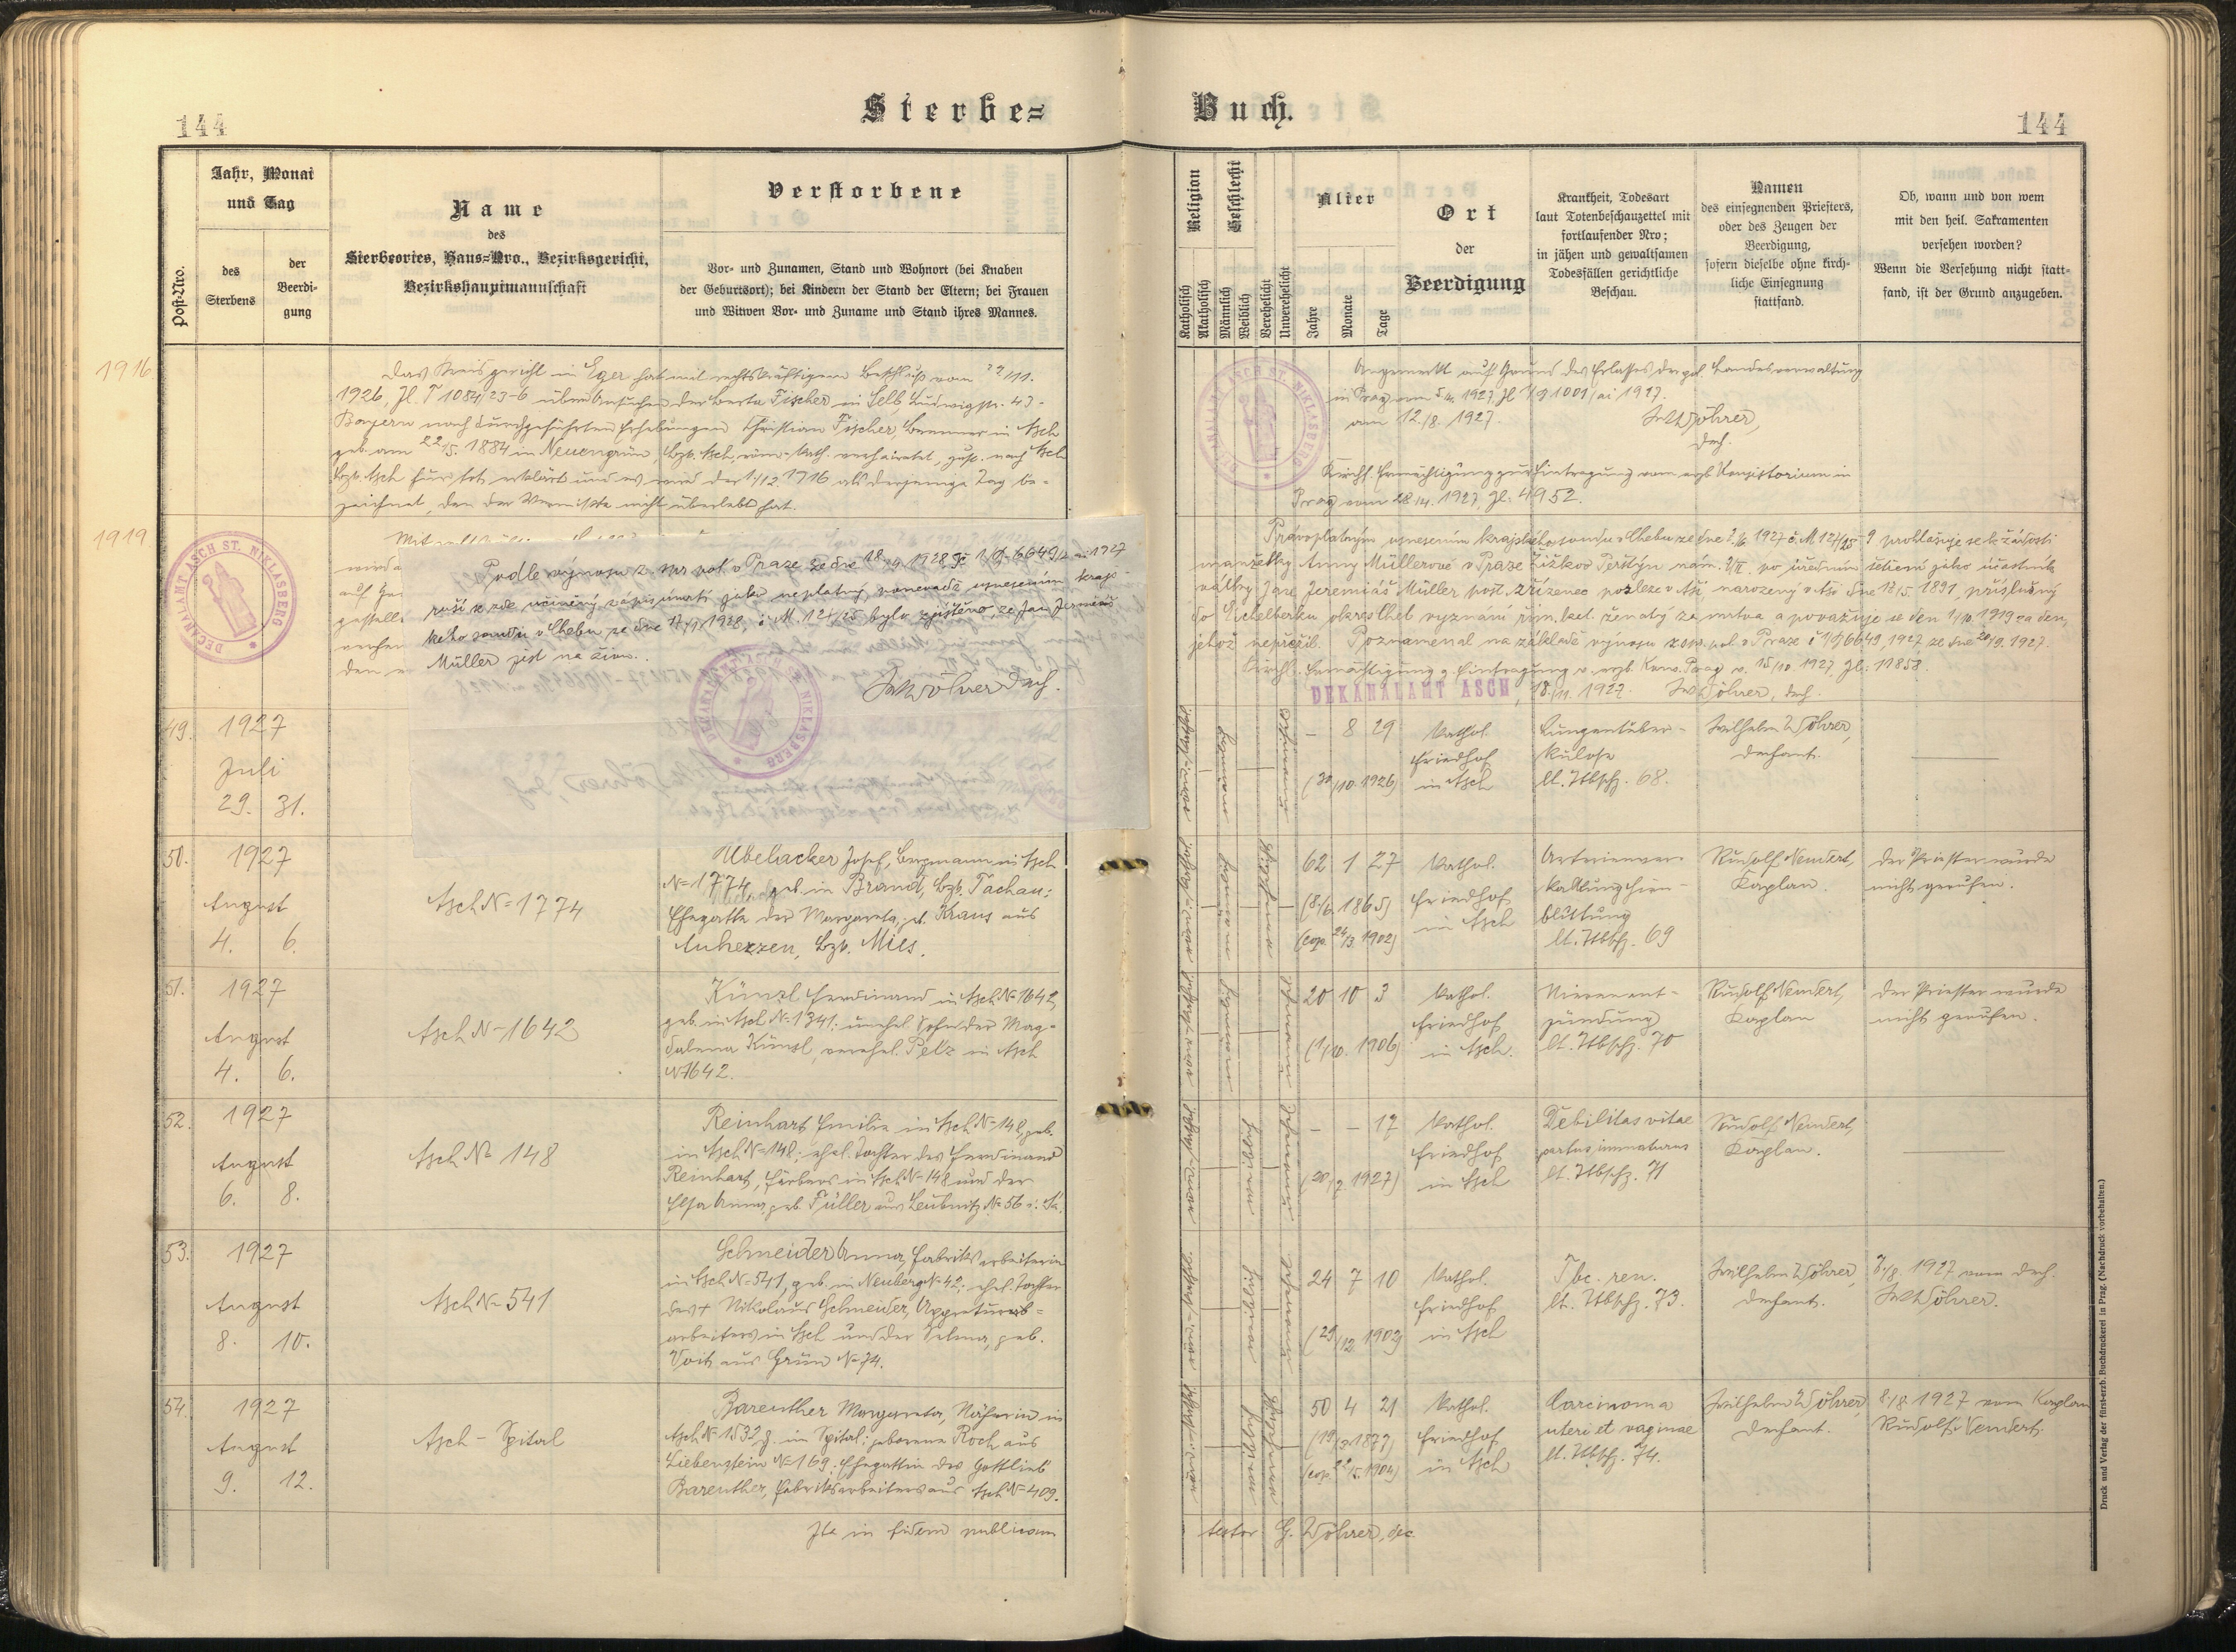 144
Sterbe=
Buch.
144
Post-Nro.
Jahr, Monat
und Tag
des
Sterbens
der
Beerdi-
gung
Name
des
Sterbeortes, Haus=Nro., Bezirksgericht,
Bezirkshauptmannschaft
Verstorbene
Vor- und Zunamen, Stand und Wohnort (bei Knaben
der Geburtsort); bei Kindern der Stand der Eltern; bei Frauen
und Witwen Vor- und Zuname und Stand ihres Mannes.
Religion
Katholisch
Akatholisch
Geschlecht
Männlich
Weiblich
Verehelicht
Unverehelicht
Alter
Jahre
Monate
Tage
Ort
der
Beerdigung
Krankheit, Todesart
laut Totenbeschauzettel mit
fortlaufender Nro;
in jähen und gewaltsamen
Todesfällen gerichtliche
Beschau.
Namen
des einsegnenden Priesters,
oder des Zeugen der
Beerdigung,
sofern dieselbe ohne kirch-
liche Einsegnung
stattfand.
Ob, wann und von wem
mit den heil. Sakramenten
versehen worden?
Wenn die Versehung nicht statt-
fand, ist der Grund anzugeben.
1916
Das Kreisgericht in Eger hat mit rechtskräftigem Beschluß vom
1926, Zl. T 1084/23-6 über Ansuchen der Berta Fischer in Selb, Ludwigstr. 43 -
Bayern nach durchgeführten Erhebungen Christian Fischer, Brenner in Asch
geb. am 22/5. 1884 in Neuengrün, Bzk. Asch, röm.-kath. verheiratet, zust. nach Asch
Bzk. Asch für tot erklärt und es wird der 1/12 1916 als derjenige Tag be-
zeichnet, den der Vermißte nicht überlebt hat.
Angemerkt auf Grund des Erlasses der pol. Landesverwaltung
in Prag vom 1927, Zl 1001 ai 1927.
am 12./8. 1927.
Wöhrer,
Dech.
Kirchl. Ermächtigung zur Eintragung vom erzb. Konsistorium in
Prag vom 28/4. 1927, Zl: 4952.
DECANALAMT ASCH ST. NIKLASBERG
1919
Podle výnosu z. spr. pol. v Praze ze dne 18./9. 1928 1927
ruší se zde učiněný zápis úmrtí jako neplatný, poněvadž usnesením kraj-
ského soudu v Chebu ze dne 17/9 1928, č. M. 124/25 bylo zjištěno, že Jan Jeremiáš
Müller jest na živu.
Wöhrer Dech.
DECANALAMT ASCH ST. NIKLASBERG
Právoplatným usnesením krajského soudu v Chebu ze dne 1927 č. M 124/25-9 prohlašuje se k žádosti
manželky Anny Müllerové v Praze Žižkov Perštýn nám. po úředním šetření jako účastník
války Jan Jeremiáš Müller pošt. zřízenec posléze v Aši, narozený v Aši dne 1891, příslušný
do Eichelberku okres Cheb vyznání řím. kat. ženatý za mrtva a považuje se den 1/10. 1919 za den,
jehož nepřežil. Poznamenal na základě výnosu z. spr. pol. v Praze č 6649, 1927 ze dne 20/9. 1927.
Kirchl. Ermächtigung z. Eintragung v. erzb. Kons. Prag v. 15/10 1927, Zl: 11858.
DEKANALAMT ASCH, 18/11. 1927. Wöhrer, Dech.
49. 1927
Juli
29. 31.
- 8 29
(30/10. 1926)
Kathol.
Friedhof
in Asch
Lungentuber-
kulose
lt. Ttbschz. 68.
Wilhelm Wöhrer,
Dechant.
50. 1927
August
4. 6.
Asch N=1774
Ubelacker Josef, Bergmann in Asch
N=1774, geb. in Brand, Bzk. Tachau;
Ehegatte der Margareta, geb. Kraus aus
Anherzen, Bzk. Mies.
62 1 27
(8/6. 1865)
(cop. 24/3. 1902)
Kathol.
Friedhof
in Asch
Arterienver-
kalkung, Hirn-
blutung
lt. Ttbschz. 69
Rudolf Nendert,
Kaplan.
Der Priester wurde
nicht gerufen.
51. 1927
August
4. 6.
Asch N=1642
Künzl Ferdinand in Asch N=1642,
geb. in Asch N=1341; unehel. Sohn der Mag-
dalena Künzl, verehel. Pelz in Asch
N=1642.
20 10 3
(1/10. 1906)
Kathol.
Friedhof
in Asch.
Nierenent-
zündung
lt. Ttbschz. 70
Rudolf Nendert,
Kaplan
Der Priester wurde
nicht gerufen.
52. 1927
August
6. 8.
Asch N= 148
Reinhart Emilie in Asch N=148, geb.
in Asch N=148; ehel. Tochter des Ferdinand
Reinhart, Färbers in Asch N=148 und der
Elsa Anna, geb. Füller aus Leubnitz N=56 i. Sa.
- - 17
(20/7. 1927)
Kathol.
Friedhof
in Asch
Debilitas vitae
partus immaturus
lt. Ttbschz. 71
Rudolf Nendert,
Kaplan.
53. 1927
August
8. 10.
Asch N=541
Schneider Anna, Fabriksarbeiterin
in Asch N=541, geb. in Neuberg N=42; ehel. Tochter
des † Nikolaus Schneider, Appreturs-
arbeiters in Asch und der Selma, geb.
Voit aus Grün N=74.
24 7 10
(29/12 1902)
Kathol.
Friedhof
in Asch
Tbc. ren.
lt. Ttbschz. 73.
Wilhelm Wöhrer,
Dechant.
7./8. 1927 vom Dech.
Wöhrer.
54. 1927
August
9. 12.
Asch - Spital
Bareuther Margareta, Näherin in
Asch N=1532, z. im Spital; geborene Roch aus
Liebenstein N=169; Ehegattin des Gottlieb
Bareuther, Fabriksarbeiters aus Asch N=409.
50 4 21
(19/3. 1877)
(cop. 22/5. 1904)
Kathol.
Friedhof
in Asch
Carcinoma
uteri et vaginae
lt. Ttbschz. 74.
Wilhelm Wöhrer,
Dechant.
8./8. 1927 vom Kaplan
Rudolf Nendert.
Ita in fidem publicam
testor G. Wöhrer, dec.
Druck und Verlag der fürst-erzb. Buchdruckerei in Prag. (Nachdruck vorbehalten.)